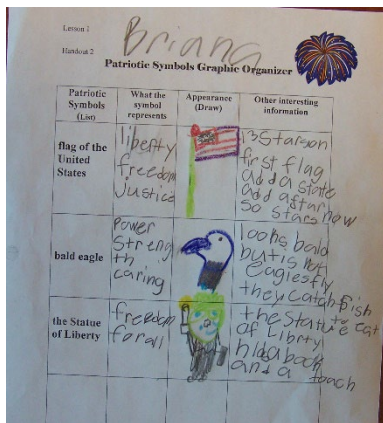 Lesson 1
Handout 2
Briana
Patriotic Symbols Graphic Organizer
Patriotic
Symbols
(List)
What the
symbol
represents
Appearance
(Draw)
Other interesting
information
flag of the
United
States
liberty
freedom
Justice
13 stars on
first flag
add a state
add a star now
50 stars
bald eagle
Power
Streng
th
caring
looks bald
but is not
eagles fly
they catch fish
to eat
the Statue
of Liberty
freedom
for all
the Statue
of Librty
hlda book
and a toach